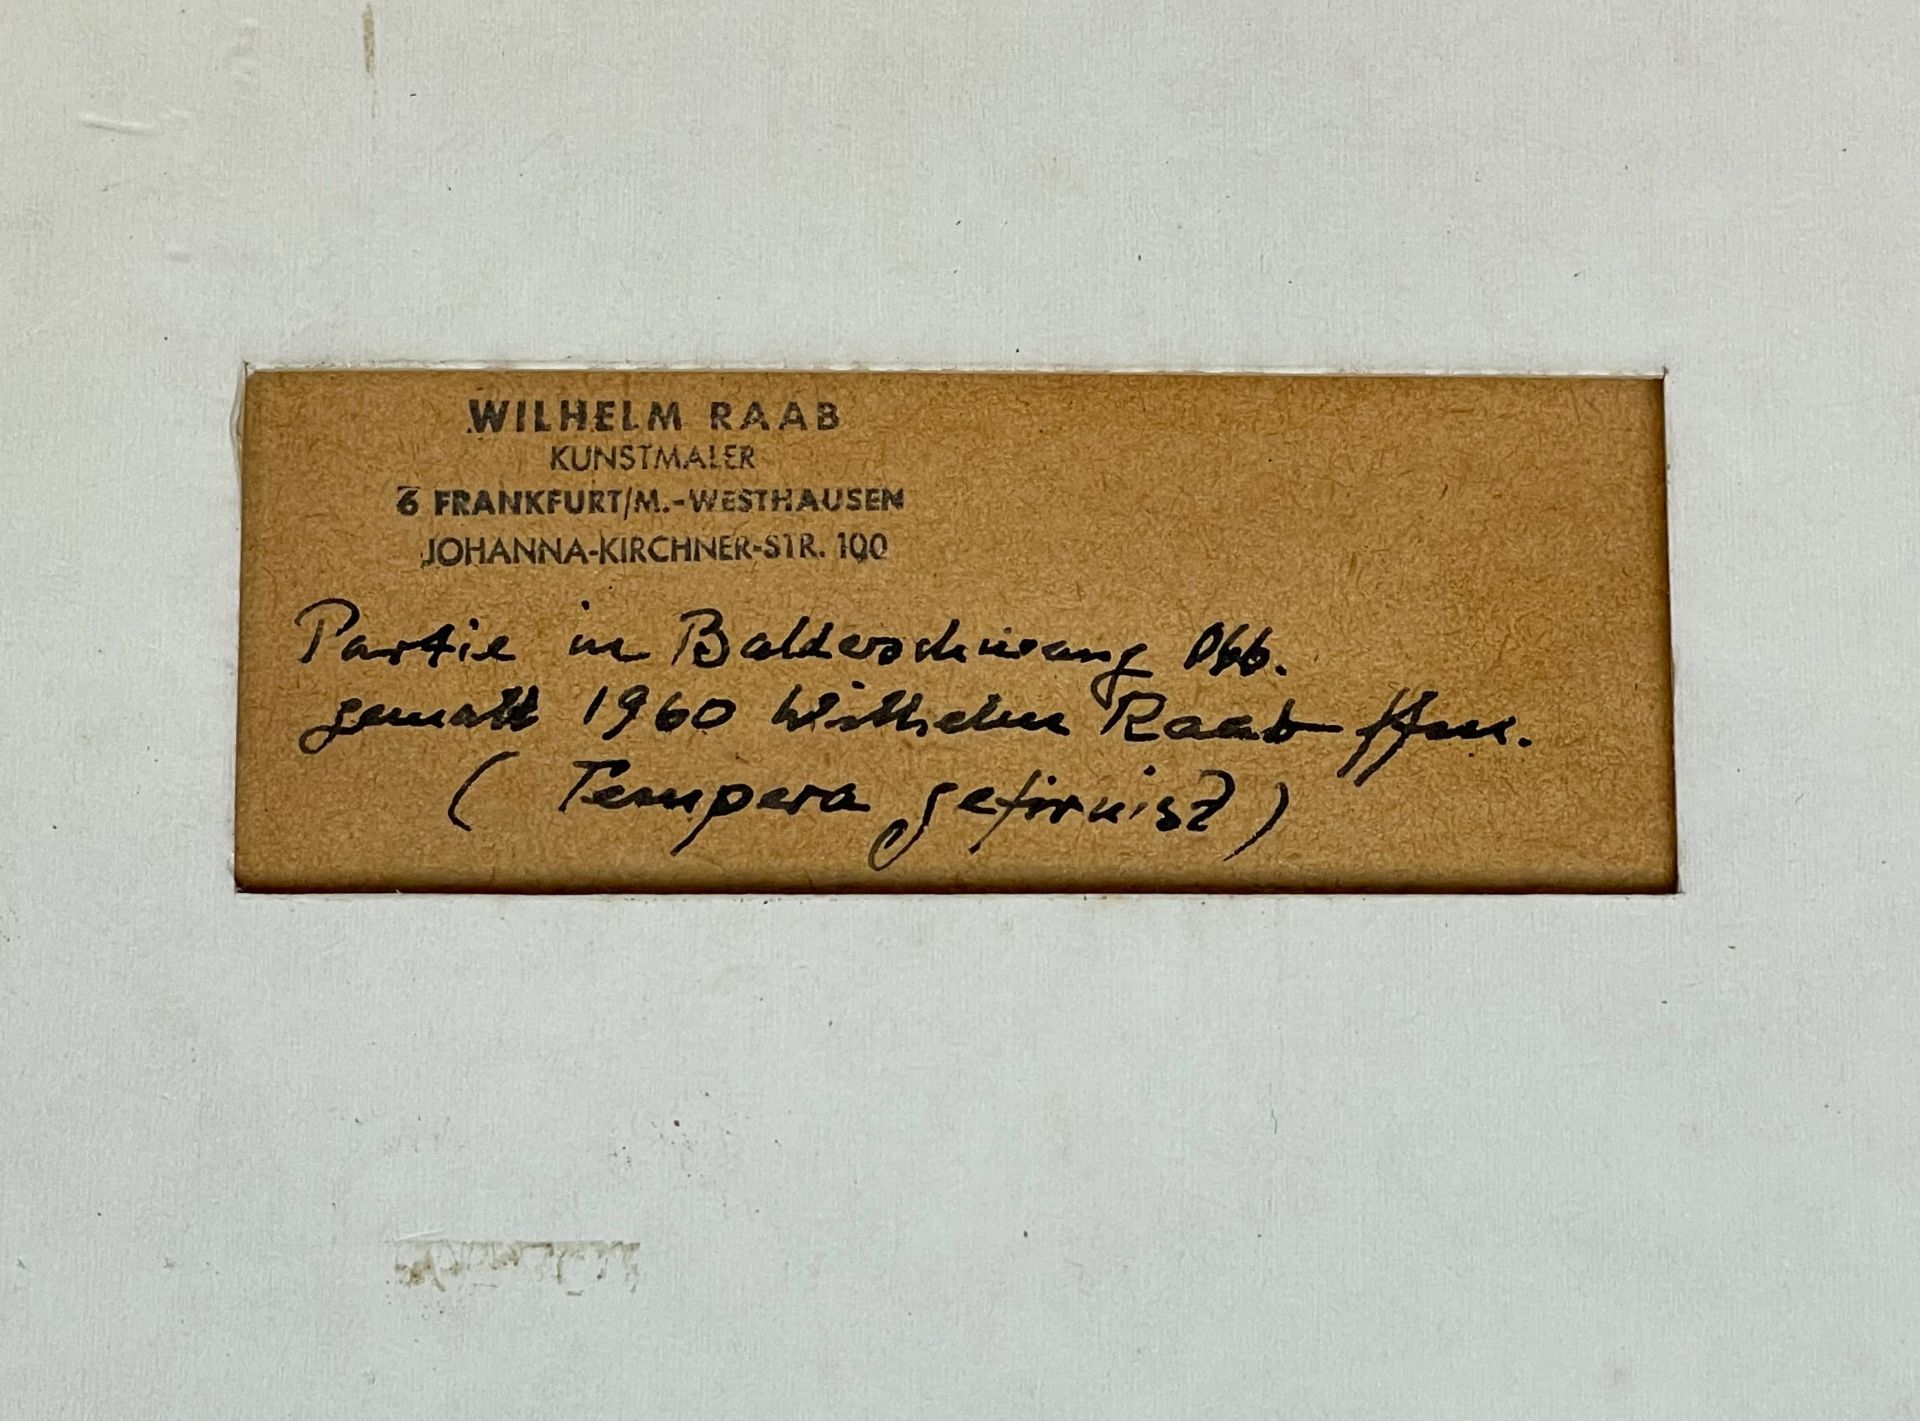 WILHELM RAAB
KUNSTMALER
6 FRANKFURT/M.-WESTHAUSEN
JOHANNA-KIRCHNER-STR. 100
Partie in Balderschwang Obb.
gemalt 1960 Wilhelm Raab Ffm.
( Tempera gefirnisst )